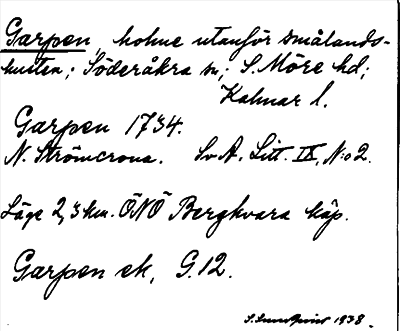 Garpen, holme utanför smålands-
kusten; Söderåkra sn; S. Möre hd;
Kalmar l.
Garpen 1734.
N. Strömcrona. SvA. Litt. IX, N:o 2.
Läge 2,3 km. ÖNÖ Bergkvara köp.
Garpen ek, G.12.
S. Lundqvist 1938.